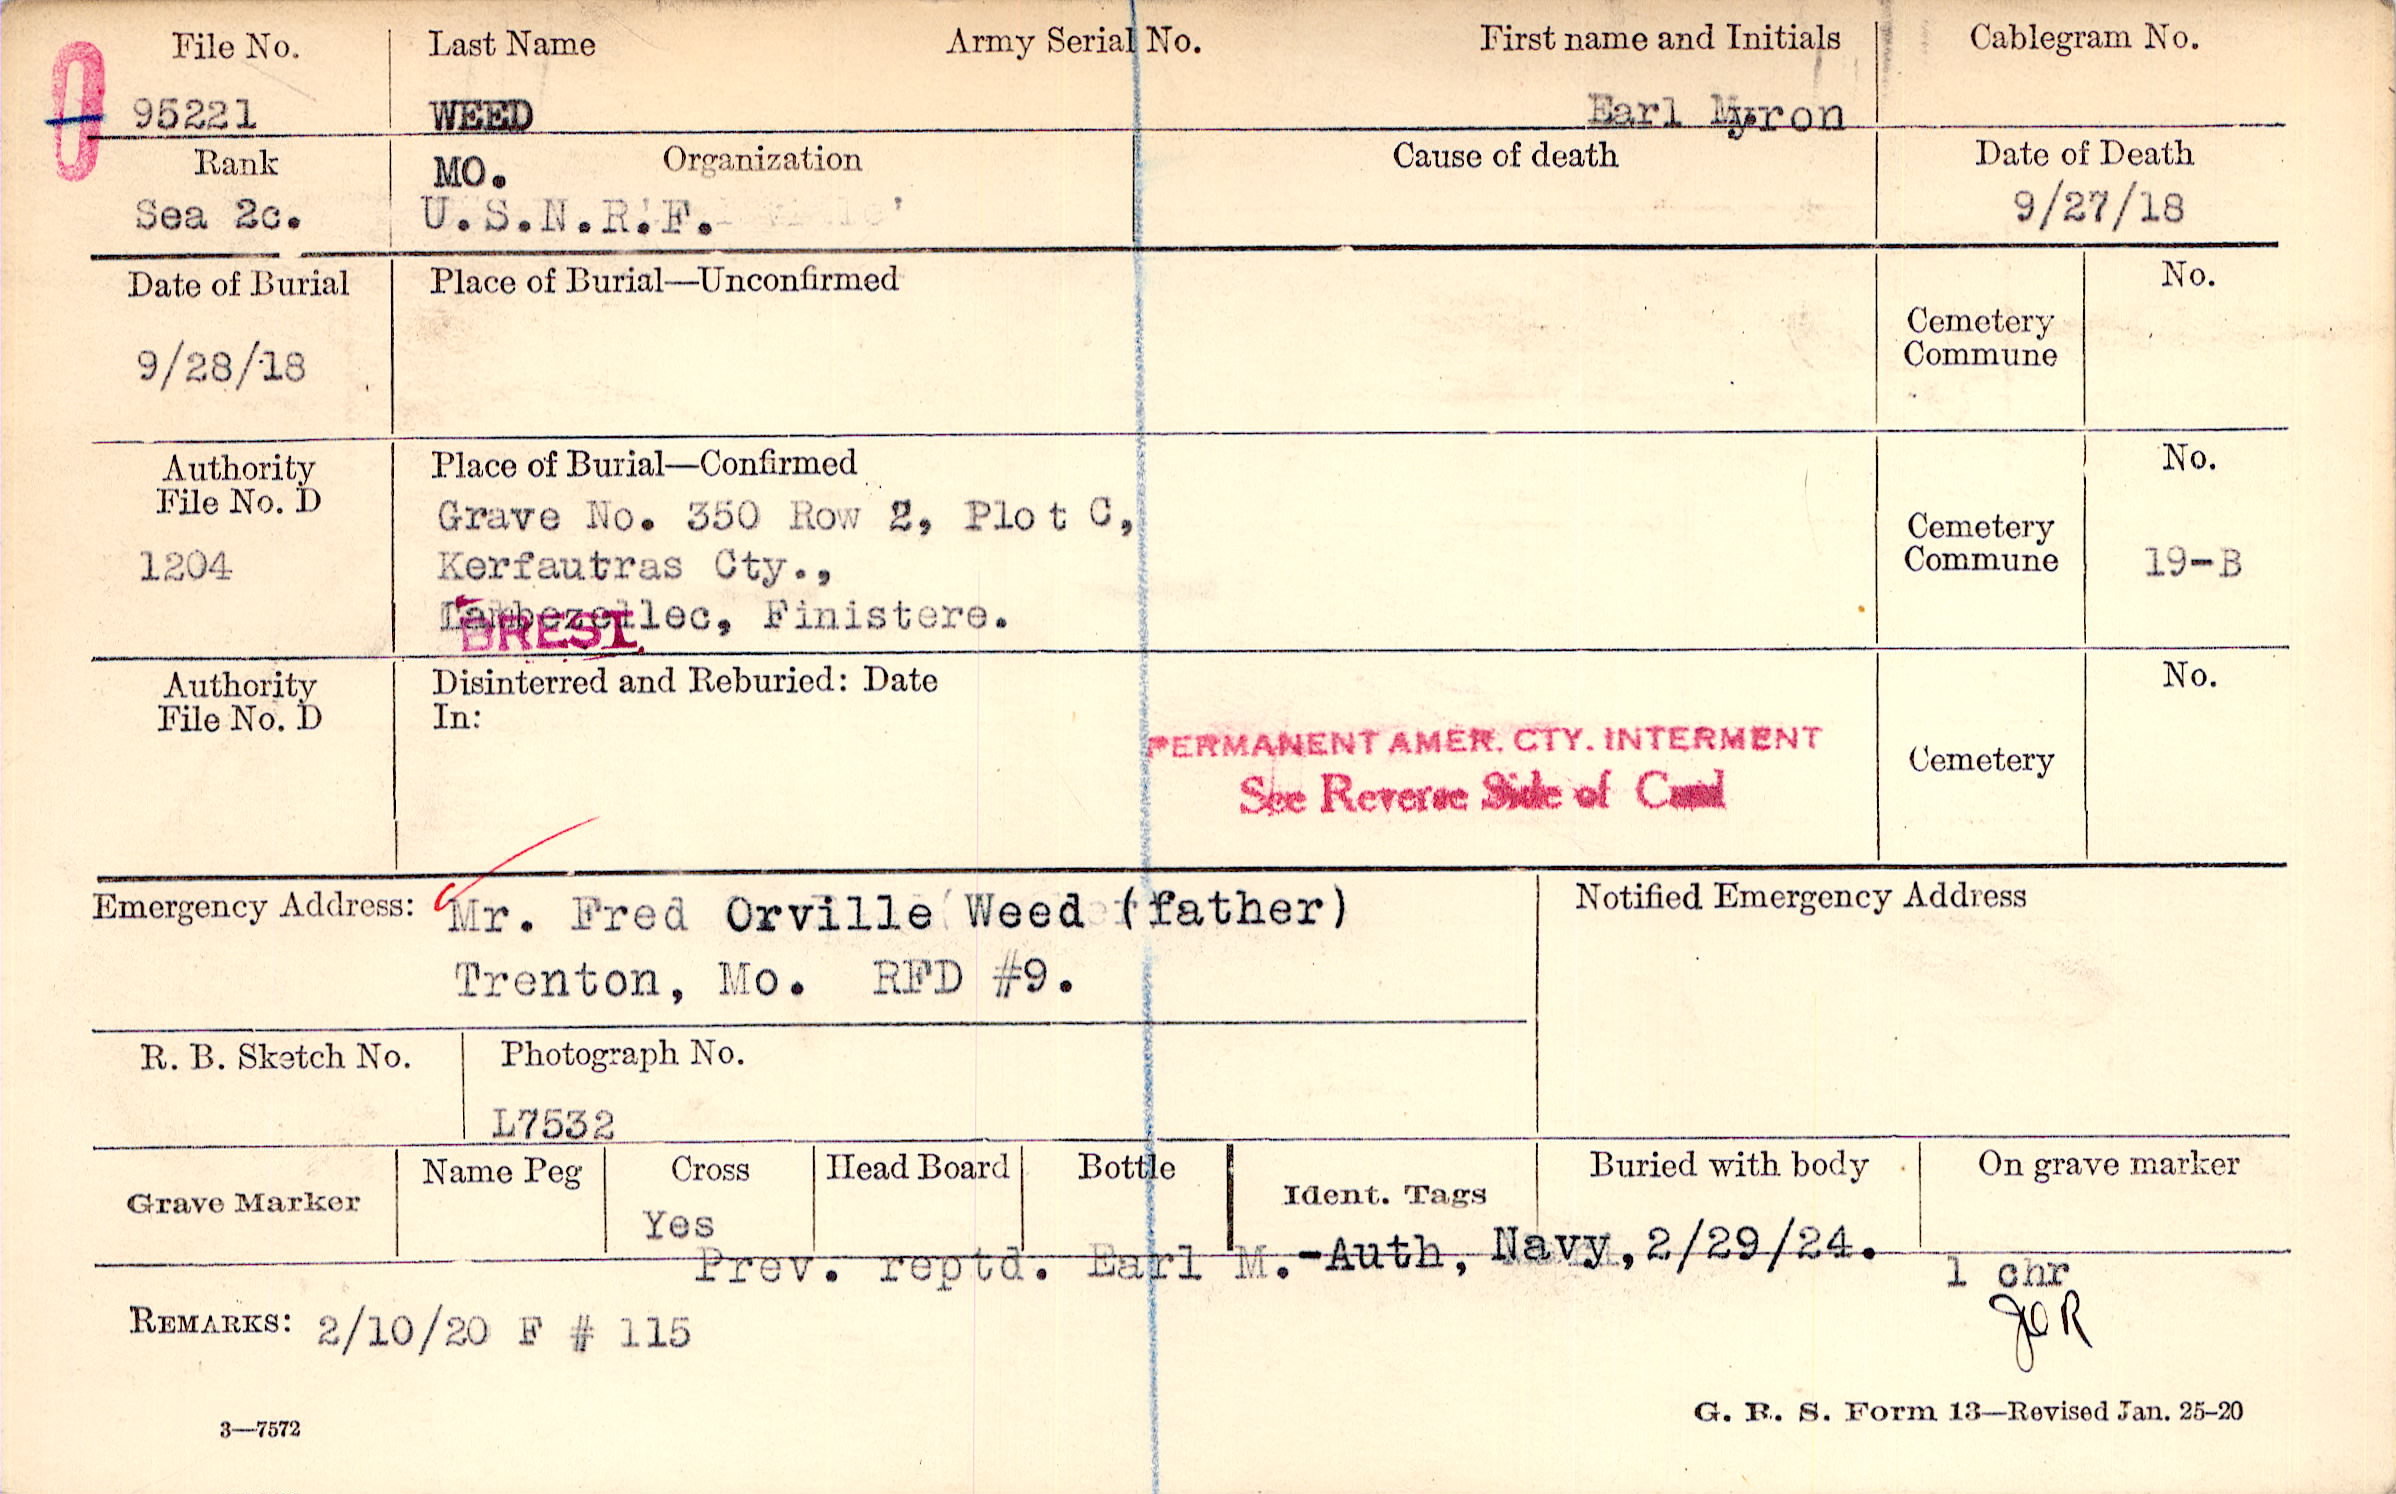 File No. Last Name Army Serial No. First name and Initials Cablegram No.
0 95221 WEED Earl Myron
Rank MO. Organization Cause of death Date of Death
Sea 2c. U.S.N.R.F. 9/27/18
Date of Burial Place of Burial—Unconfirmed No.
Cemetery
Commune
9/28/18
Authority Place of Burial—Confirmed No.
File No. D Grave No. 350 Row 2, Plot C, Cemetery
1204 Kerfautras Cty., Commune 19-B
Lambezellec, Finistere.
BREST.
Authority Disinterred and Reburied: Date No.
File No. D In:
PERMANENT AMER. CTY. INTERMENT
Cemetery
See Reverse Side of Card
Emergency Address: Mr. Fred Orville Weed (father) Notified Emergency Address
Trenton, Mo. RFD #9.
R. B. Sketch No. Photograph No.
L7532
Grave Marker Name Peg Cross Head Board Bottle Ident. Tags Buried with body On grave marker
Yes
Prev. reptd. Earl M.-Auth, Navy, 2/29/24.
1 chr
JOR
REMARKS: 2/10/20 F # 115
3—7572 G. R. S. Form 13—Revised Jan. 25-20